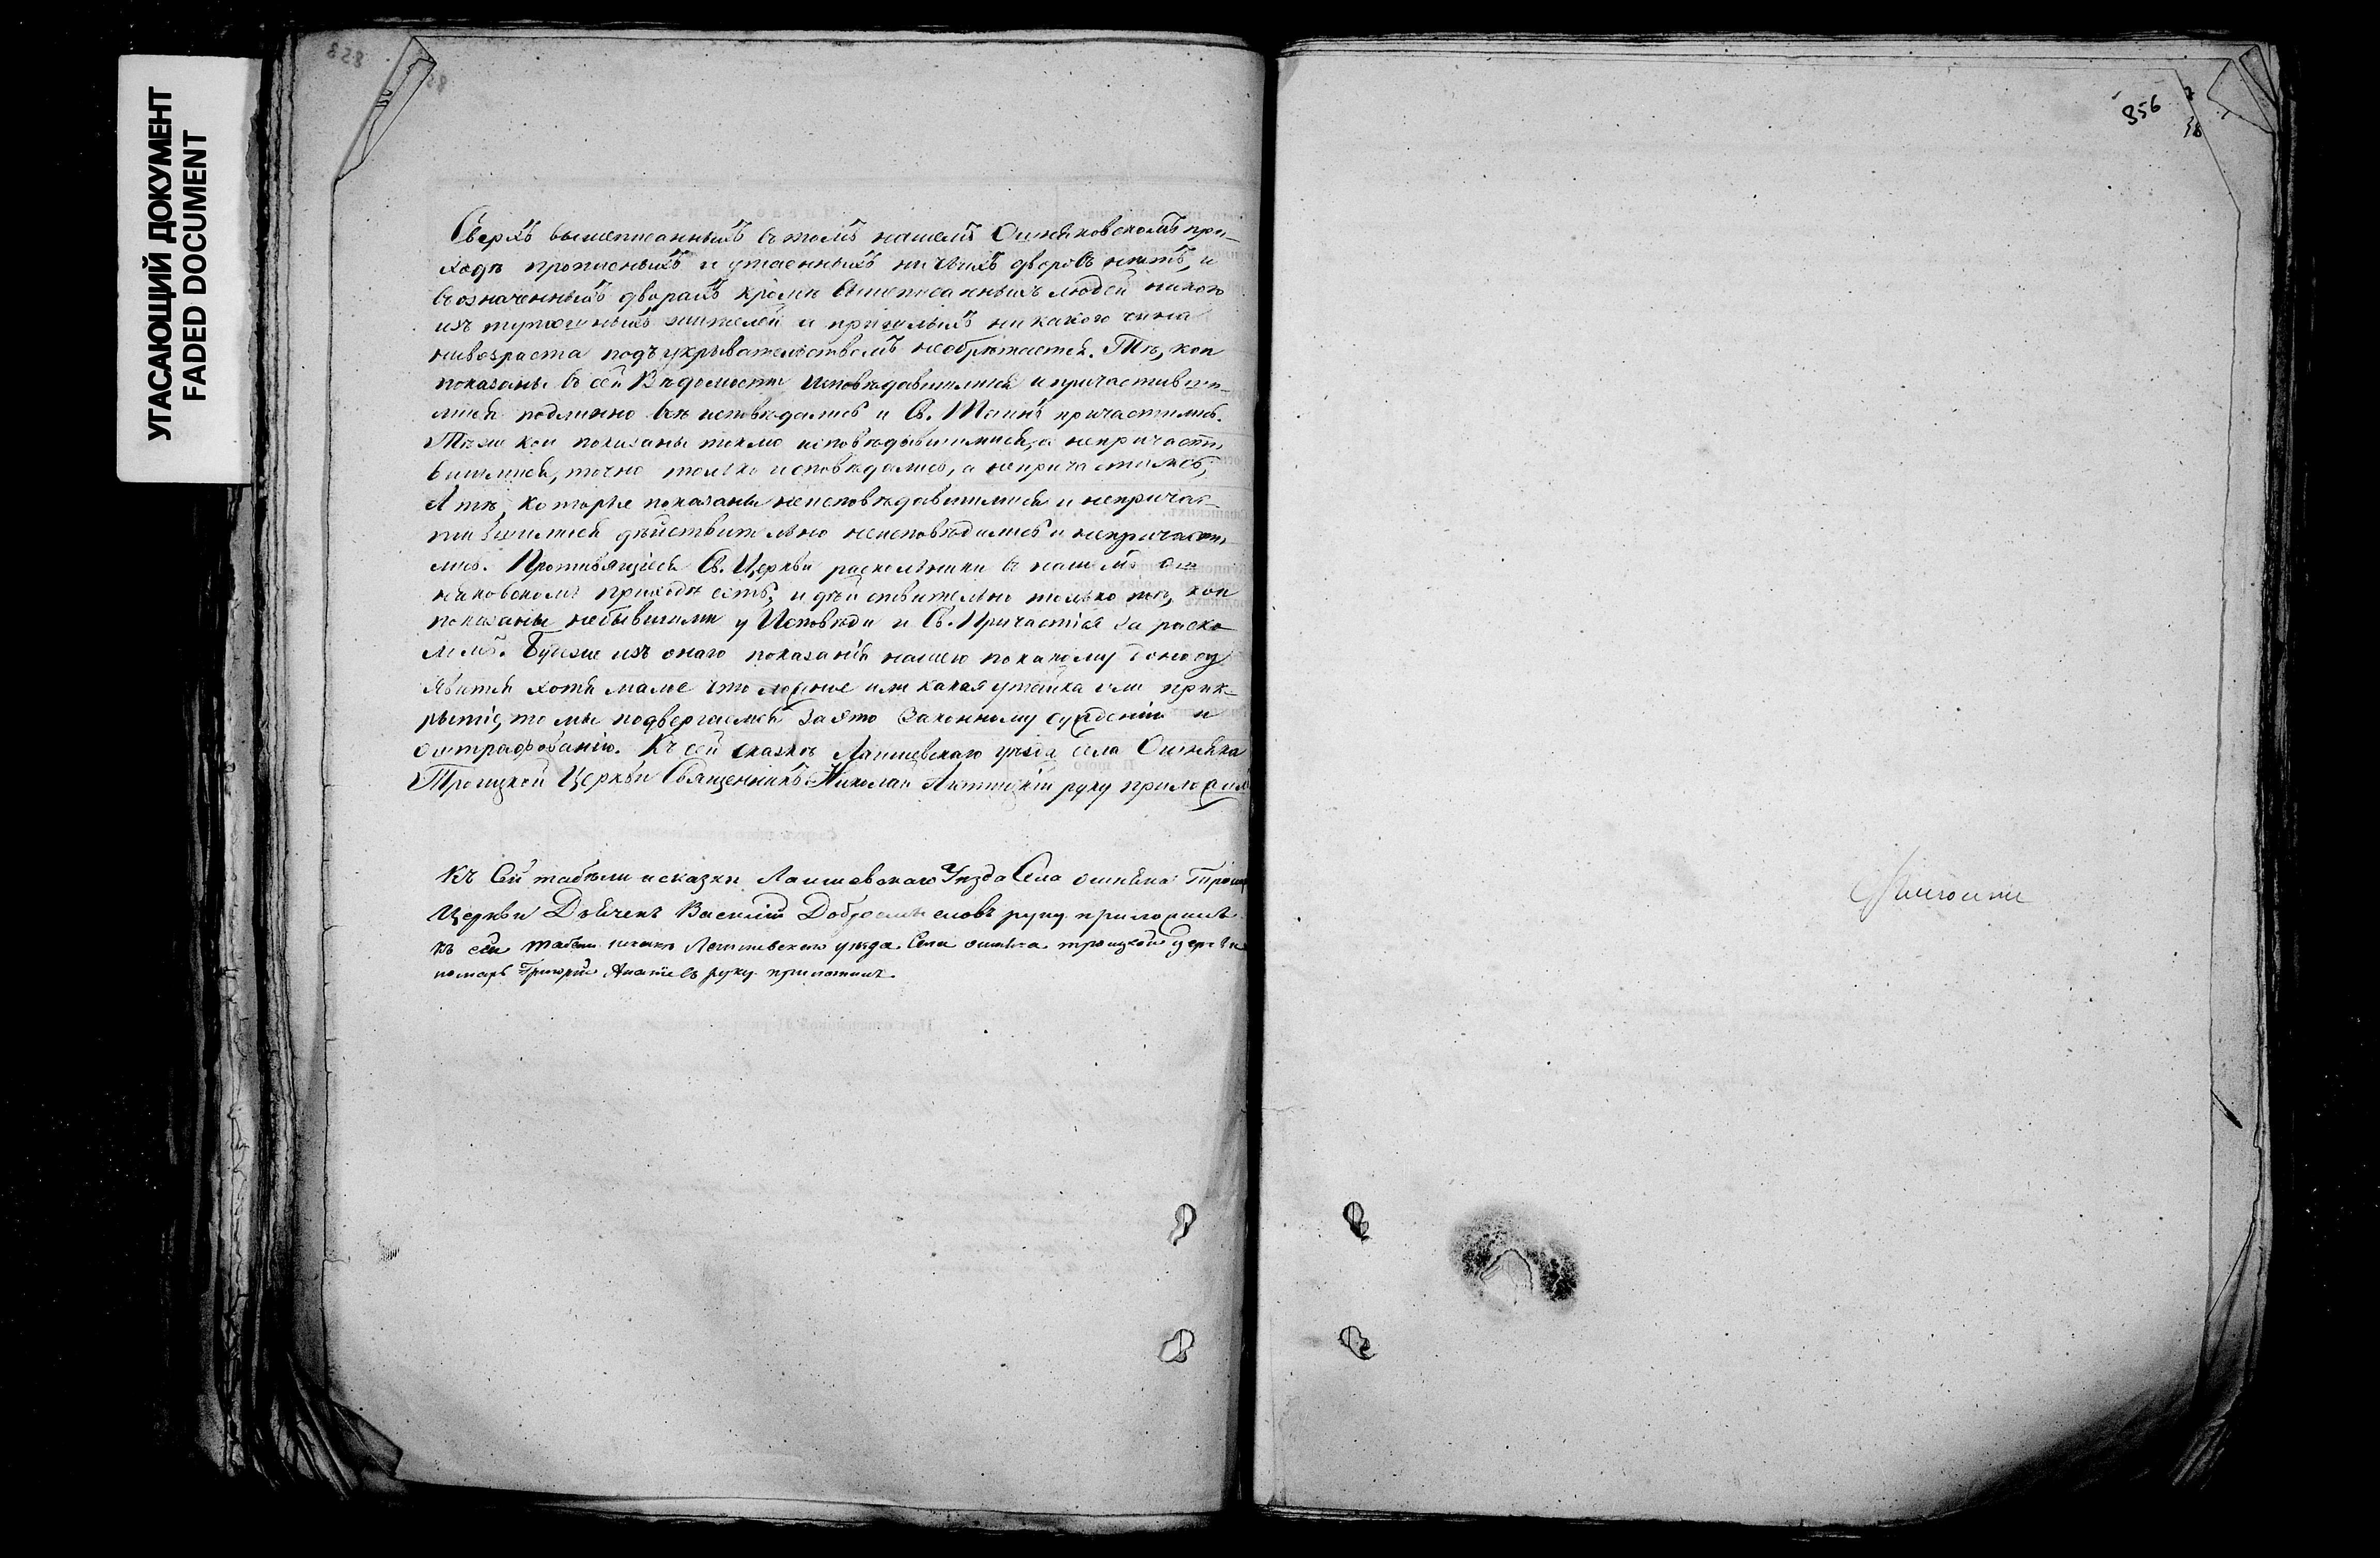 УГАСАЮЩИЙ ДОКУМЕНТ
FADED DOCUMENT
828
Сверхъ вышеписанныхъ въ томъ нашемъ Ошняковскомъ при-
ходѣ прописныхъ и утаенныхъ ничьихъ дворовъ нѣтъ, и
въ означенныхъ дворахъ кромѣ вышеписанныхъ людей никого
изъ тутошныхъ жителей и пришлыхъ никакого чина
ни возраста подъ укрывательствомъ необрѣтается. Тѣ, кои
показаны въ сей Вѣдомости исповѣдавшимися и причастивши-
мися подлинно всѣ исповѣдались и Св. Таинъ причастились.
Тѣ же кои показаны токмо исповѣдывшимися, а непричасти
вшимися, точно только исповѣдались, а непричастились;
А тѣ, которые показаны неисповѣдавшимися и непричас-
тившимися дѣйствительно неисповѣдались и непричасти
лись. Противящіеся Св. Церкви раскольники въ нашемъ Ош
няковскомъ приходѣ есть, и дѣйствительно только тѣ, кои
показаны небывшими у Исповѣди и Св. Причастія за раско
ломъ. Буде же изъ онаго показанія нашего по какому доносу
явится хотя мало что ложное или какая утайка или прик-
рытіе, то мы подвергаемся за это Законному сужденію и
оштрафованію. Къ сей сказкѣ Лаишевскаго уѣзда села Ошняка
Троицкой Церкви Священникъ Николай руку приложилъ
Къ Сей табели и сказки Лаишевскаго Уѣзда Села ошняка Троиц
Церкви Дьячекъ Василій Добросмысловъ руку приложилъ
къ сей табели Лаишевскаго уѣзда Села ошняка троицкой церкви
понамарь Григорій руку приложилъ.
856